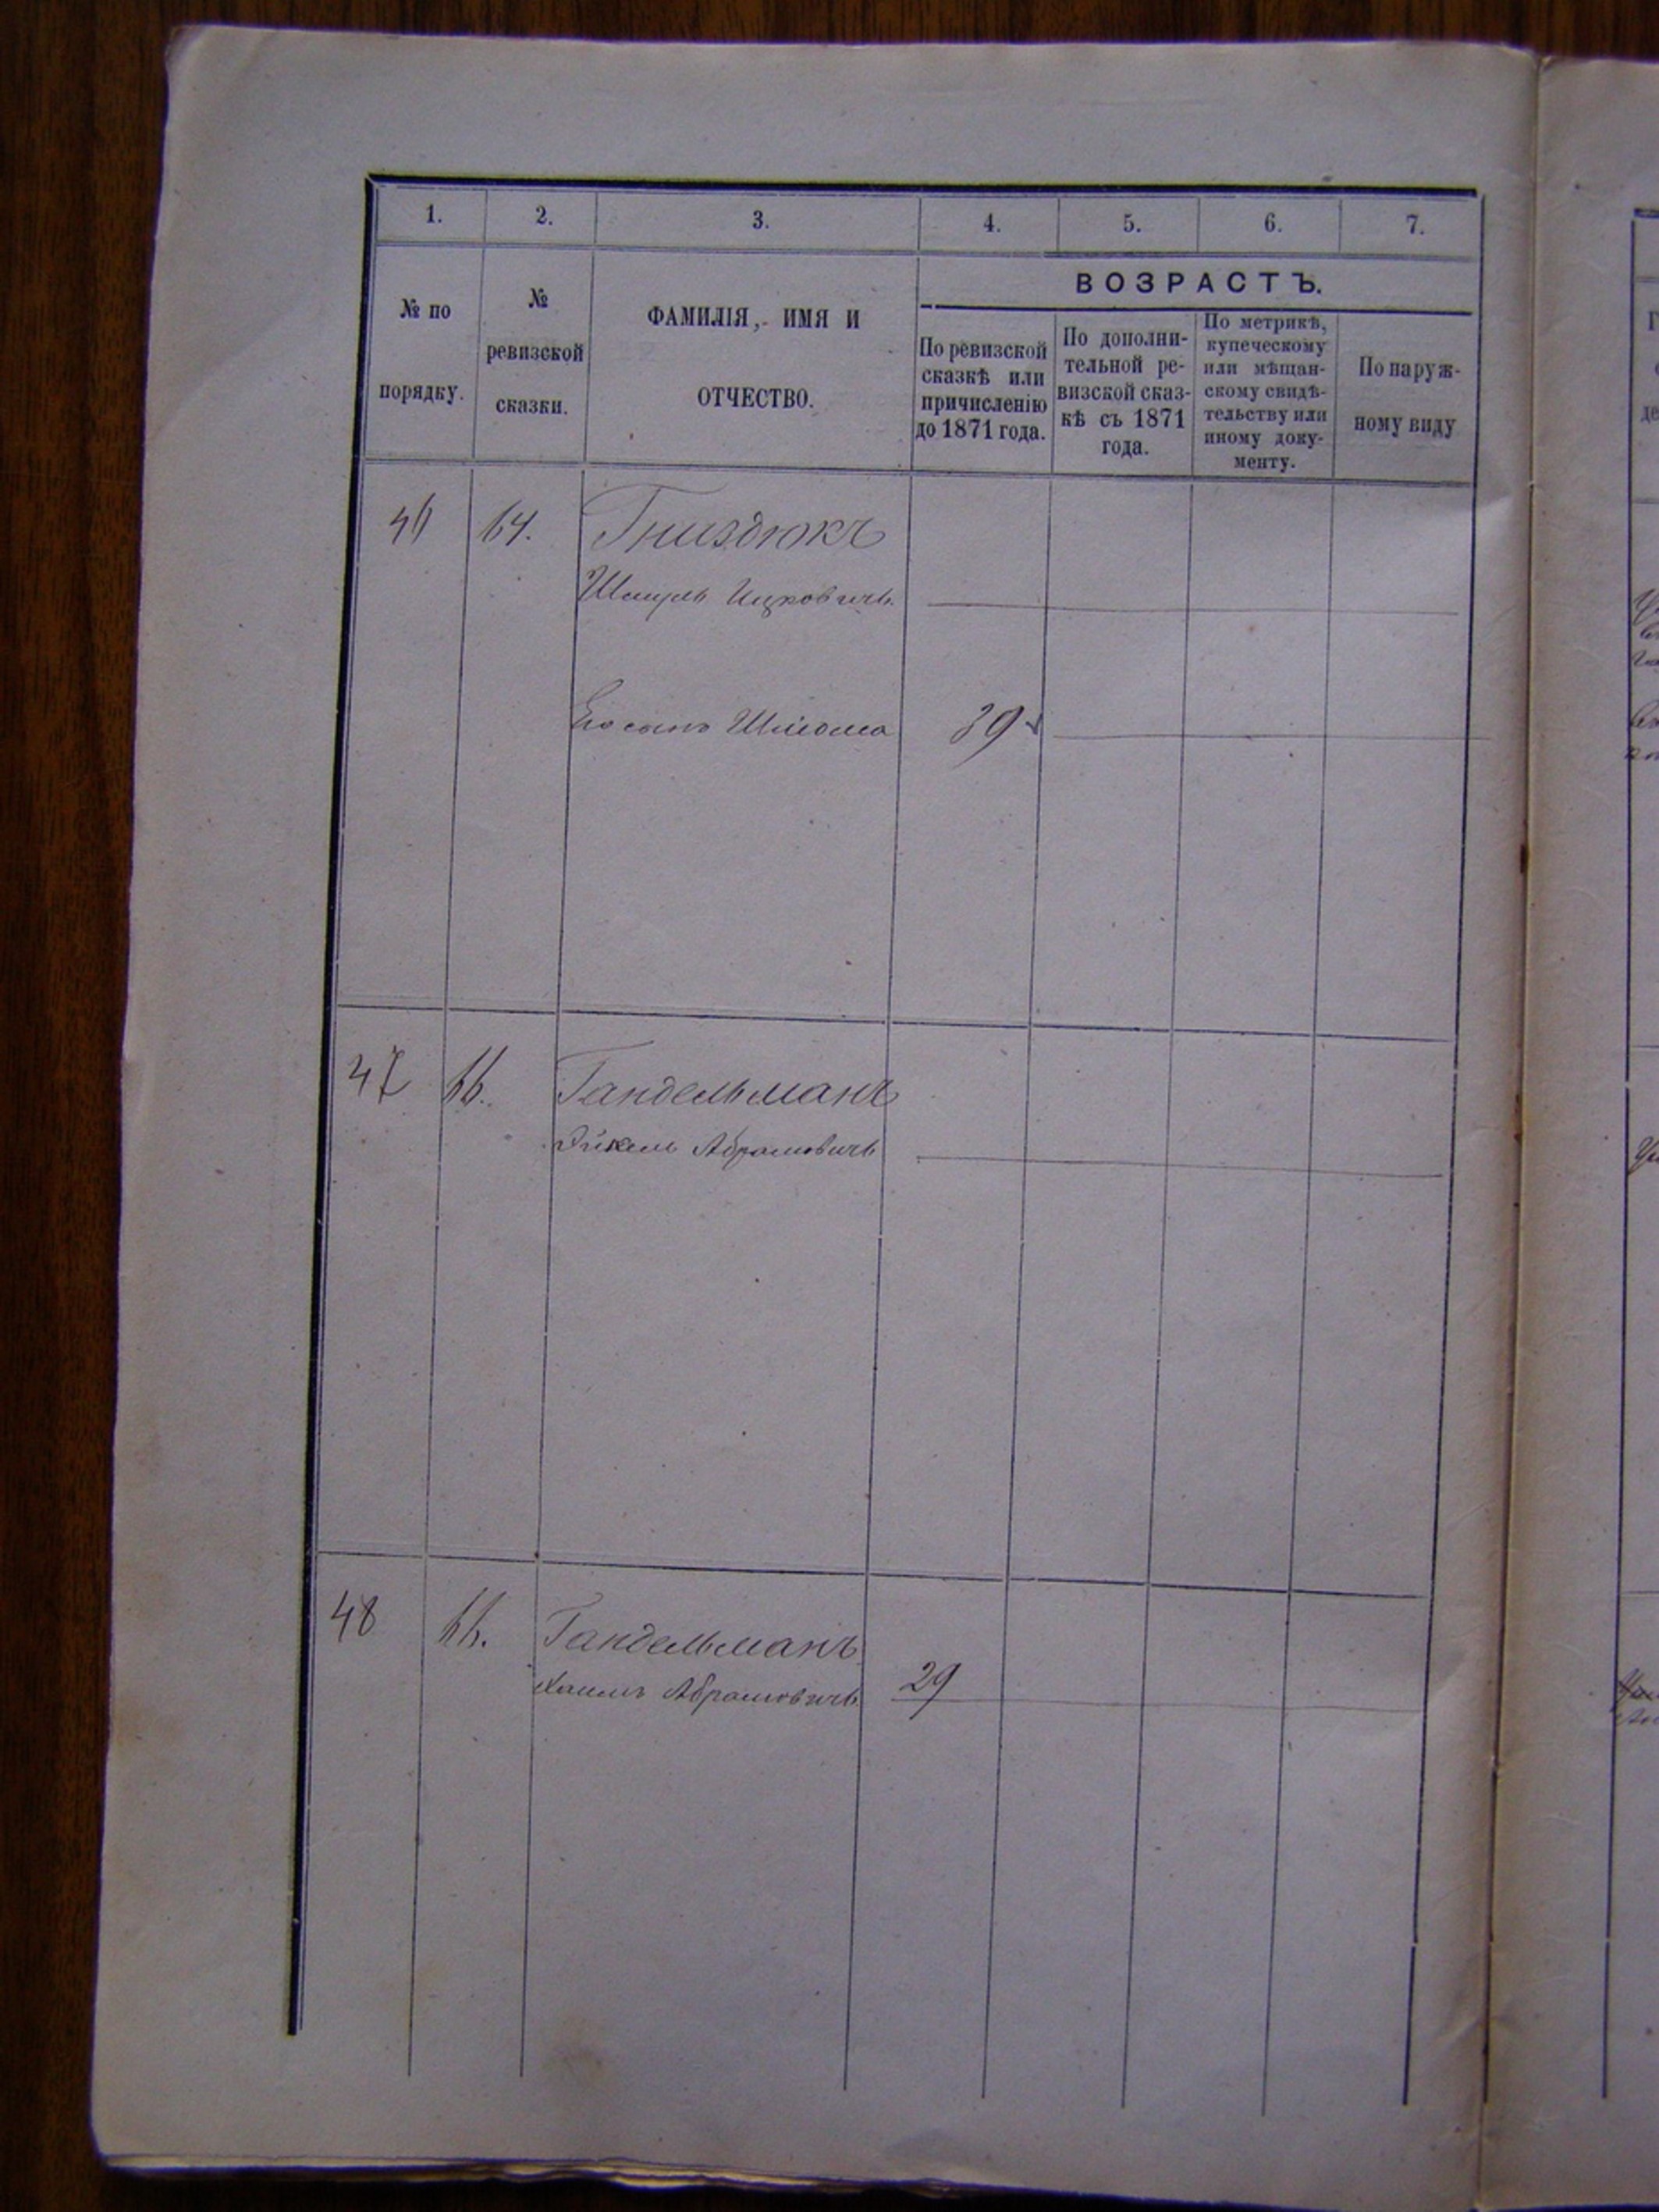 1. 2. 3. 4. 5. 6. 7.
№ по порядку.
№ ревизской сказки.
ФАМИЛІЯ, ИМЯ И ОТЧЕСТВО.
ВОЗРАСТЪ.
По ревизской сказкѣ или причисленію до 1871 года.
По дополни-тельной ре-визской сказ-кѣ съ 1871 года.
По метрикѣ, купеческому или мѣщан-скому свидѣ-тельству или иному доку-менту.
По наруж-ному виду
46 64. Гниздюкъ
Шмуль Ицковичъ.
Его сынъ Шлiома 39
47 66. Гандельманъ
Абрамовичъ
48 66. Гандельманъ
Хаимъ Абрамовичъ. 29